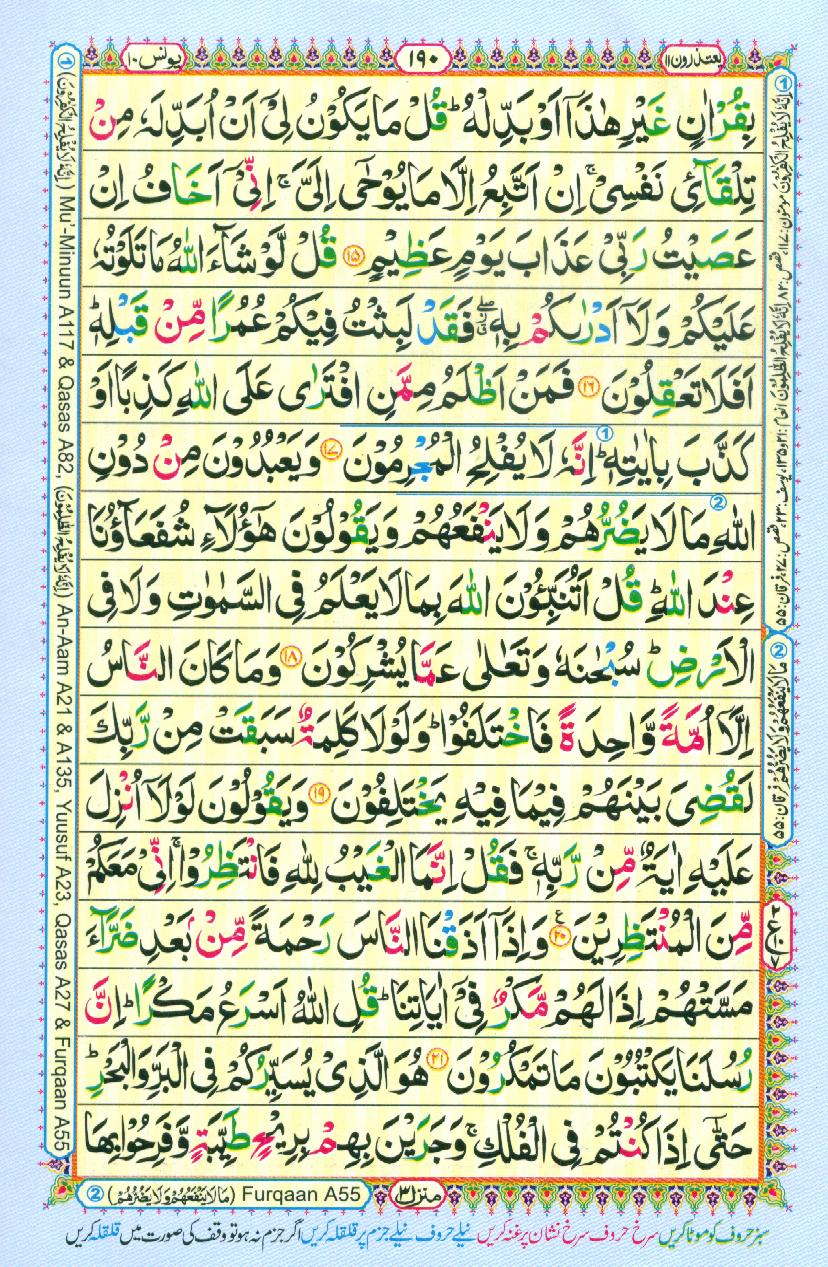 یعتذرون ۱۱
۱۹۰
یونس ۱۰
بِقُرْاٰنٍ غَيْرِ هٰذَاۤ اَوْ بَدِّلْهُ ؕ قُلْ مَا يَكُوْنُ لِيْۤ اَنْ اُبَدِّلَهٗ مِنْ
تِلْقَآئِ نَفْسِيْ ۚ اِنْ اَتَّبِعُ اِلَّا مَا يُوْحٰۤى اِلَيَّ ۚ اِنِّيْۤ اَخَافُ اِنْ
عَصَيْتُ رَبِّيْ عَذَابَ يَوْمٍ عَظِيْمٍ ۝۱۵ قُلْ لَّوْ شَآءَ اللّٰهُ مَا تَلَوْتُهٗ
عَلَيْكُمْ وَلَاۤ اَدْرٰىكُمْ بِهٖ ۖ فَقَدْ لَبِثْتُ فِيْكُمْ عُمُرًا مِّنْ قَبْلِهٖ ؕ
اَفَلَا تَعْقِلُوْنَ ۝۱۶ فَمَنْ اَظْلَمُ مِمَّنِ افْتَرٰى عَلَى اللّٰهِ كَذِبًا اَوْ
كَذَّبَ بِاٰيٰتِهٖ ؕ ① اِنَّهٗ لَا يُفْلِحُ الْمُجْرِمُوْنَ ۝۱۷ وَيَعْبُدُوْنَ مِنْ دُوْنِ
اللّٰهِ ② مَا لَا يَضُرُّهُمْ وَلَا يَنْفَعُهُمْ وَيَقُوْلُوْنَ هٰۤؤُلَآءِ شُفَعَآؤُنَا
عِنْدَ اللّٰهِ ؕ قُلْ اَتُنَبِّئُوْنَ اللّٰهَ بِمَا لَا يَعْلَمُ فِي السَّمٰوٰتِ وَلَا فِي
الْاَرْضِ ؕ سُبْحٰنَهٗ وَتَعٰلٰى عَمَّا يُشْرِكُوْنَ ۝۱۸ وَمَا كَانَ النَّاسُ
اِلَّاۤ اُمَّةً وَّاحِدَةً فَاخْتَلَفُوْا ؕ وَلَوْلَا كَلِمَةٌ سَبَقَتْ مِنْ رَّبِّكَ
لَقُضِيَ بَيْنَهُمْ فِيْمَا فِيْهِ يَخْتَلِفُوْنَ ۝۱۹ وَيَقُوْلُوْنَ لَوْلَاۤ اُنْزِلَ
عَلَيْهِ اٰيَةٌ مِّنْ رَّبِّهٖ ۚ فَقُلْ اِنَّمَا الْغَيْبُ لِلّٰهِ فَانْتَظِرُوْا ۚ اِنِّيْ مَعَكُمْ
مِّنَ الْمُنْتَظِرِيْنَ ۝۲۰ ع وَاِذَاۤ اَذَقْنَا النَّاسَ رَحْمَةً مِّنْۢ بَعْدِ ضَرَّآءَ
مَسَّتْهُمْ اِذَا لَهُمْ مَّكْرٌ فِيْۤ اٰيَاتِنَا ؕ قُلِ اللّٰهُ اَسْرَعُ مَكْرًا ؕ اِنَّ
رُسُلَنَا يَكْتُبُوْنَ مَا تَمْكُرُوْنَ ۝۲۱ هُوَ الَّذِيْ يُسَيِّرُكُمْ فِي الْبَرِّ وَالْبَحْرِ ؕ
حَتّٰۤى اِذَا كُنْتُمْ فِي الْفُلْكِ ۚ وَجَرَيْنَ بِهِمْ بِرِيْحٍ طَيِّبَةٍ وَّفَرِحُوْا بِهَا
① (اِنَّهٗ لَا يُفْلِحُ الْكٰفِرُوْنَ) Mu'-Minuun A117 & Qasas A82, (اِنَّهٗ لَا يُفْلِحُ الظّٰلِمُوْنَ) An-Aam A21 & A135, Yuusuf A23, Qasas A27 & Furqaan A55
② مَا لَا يَنْفَعُهُمْ وَلَا يَضُرُّهُمْ فرقان: ۵۵
منزل ۳
② (مَا لَا يَنْفَعُهُمْ وَلَا يَضُرُّهُمْ) Furqaan A55
سبز حروف کو موٹا کریں سرخ حروف سرخ نشان پر غنہ کریں نیلے حروف نیلے جزم پر قلقلہ کریں اگر جزم نہ ہو تو وقف کی صورت میں قلقلہ کریں